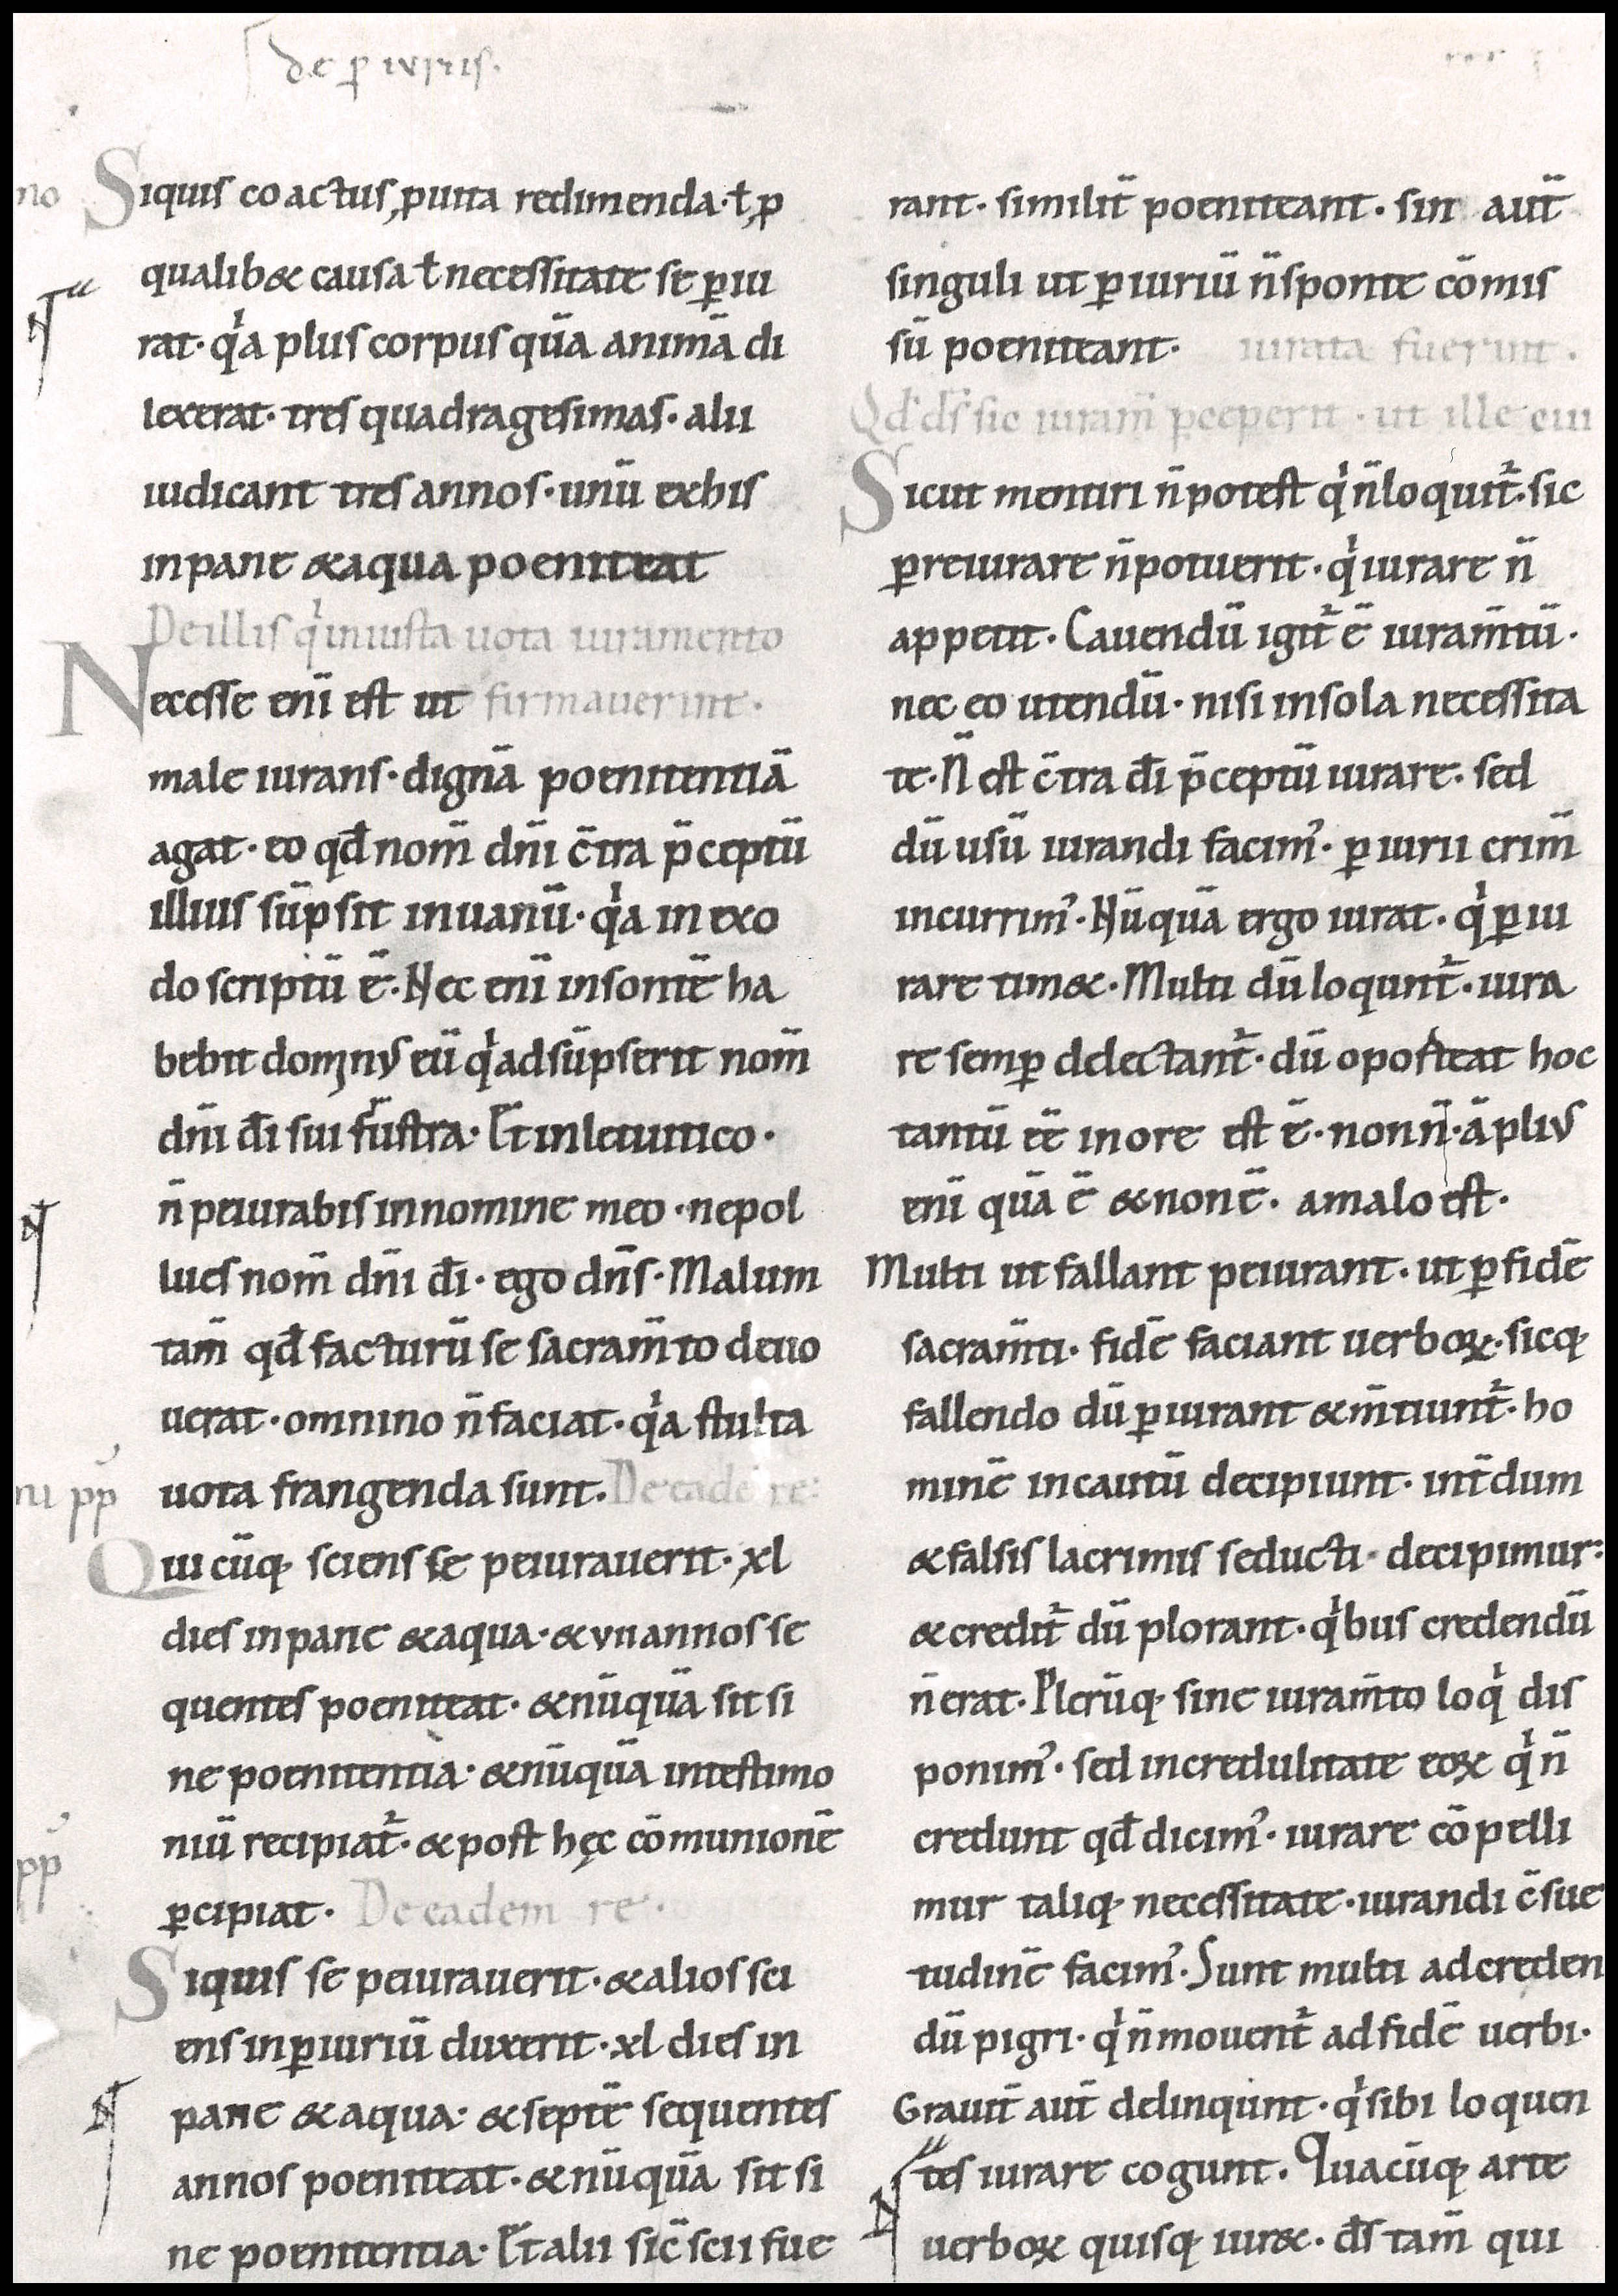 de p̲ iuriis.
no Siquis coactus, p uita redimenda · ł p̲
qualib& causa ł necessitate se p̲iu
rat · q'a plus corpus qūa animā di
lexerat · tres quadragesimas · alii
iudicant tres annos · unū ex his
in pane & aqua poeniteat
De illis q' iniusta uota iuramento
Necesse enī est ut firmauerint .
male iurans · dignā poenitentiā
agat · eo qđ nom̄ dn̄i c̄tra p̄ceptū
illius sūpsit in uanū · q'a in exo
do scriptū ē · Nec enī insontē ha
bebit dominus eū q' adsūpserit nom̄
dn̄i đi sui frustra · It̄ in leuitico ·
n̄ peiurabis in nomine meo · ne pol
lues nom̄ dn̄i đi · ego dn̄s · Malum
tam̄ qđ facturū se sacram̄to deuo
uerat · omnino n̄ faciat · q'a stulta
uota frangenda sunt. De eadē re:
Qui cūq; sciens se peiurauerit · xl
dies in pane & aqua · & vii annos se
quentes poeniteat · & nūqūa sit si
ne poenitentia · & nūqūa in testimo
niū recipiat᷑ · & post hęc cōmunionē
p̲cipiat · De eadem re ·
Siquis se peiurauerit · & alios sci
ens in p̲iuriū duxerit · xl dies in
pane & aqua · & septē sequentes
annos poeniteat · & nūqūa sit si
ne poenitentia · It̄ alii sic̄ scii fue
rant · similit̄ poeniteant · sin aut̄
singuli ut p̲iuriū n̄ sponte cōmis
sū poeniteant · iurata fuerint .
Qđ đs sic iuram̄ p̲ceperit · ut ille cui
Sicut mentiri n̄ potest q' n̄ loquit᷑ · sic
p̲reiurare n̄ potuerit · q' iurare n̄
appetit · Cauendū igit᷑ ē iuram̄tū ·
nec eo utendū · nisi in sola necessita
te · N̄ est c̄tra đi p̄ceptū iurare · sed
dū usū iurandi facim' · p̲iurii crim̄
incurrim' · Nūqūa ergo iurat · q' p̲iu
rare tim& · Multi dū loqunt᷑ · iura
re semp̲ delectant᷑ · dū oporteat hoc
tantū eē in ore est ē · non n̄ · āplius
enī qūa ē & non ē · a malo est ·
Multi ut fallant peiurant · ut p̲ fidē
sacram̄ti · fidē faciant uerboꝝ · sicq;
fallendo dū p̲iurant & m̄tiunt᷑ · ho
minē incautū decipiunt · int̄dum
& falsis lacrimis seducti · decipimur:
& credit᷑ dū plorant · q'bus credendū
n̄ erat · Plerūq; sine iuram̄to loq' dis
ponim' · sed incredulitate eoꝝ q' n̄
credunt qđ dicim' · iurare cōpelli
mur taliq; necessitate · iurandi c̄sue
tudinē facim' · Sunt multi ad creden
dū pigri · q' n̄ mouent᷑ ad fidē uerbi ·
Grauit̄ aut̄ delinqunt · q' sibi loquen
tes iurare cogunt · Quacūq; arte
uerboꝝ quisq; iur& · đs tam̄ qui